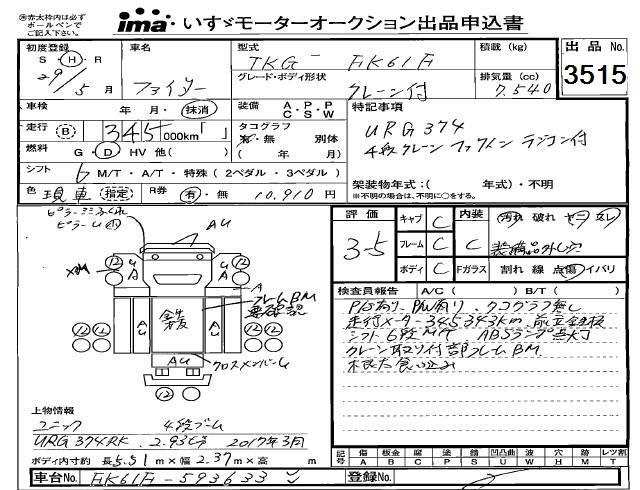 ㊟赤太枠内は必ず
ボールペンで
ご記入下さい。
ima いすゞモーターオークション出品申込書
初度登録 車名 型式 積載(kg) 出品No.
S・H・R ファイター TKG- FK61F 3515
29年 5月 グレード・ボディ形状 クレーン付 排気量(cc) 7.540
車検 年 月・抹消 装備 A・P・P C・S・W 特記事項
走行 B 345000km「 」 タコグラフ 有・無 別体 URG374
燃料 G・D HV 他( ) ( 年 月) 4段クレーン フックイン ラジコン付
シフト 6 M/T・A/T・特殊(2ペダル・3ペダル) 架装物年式:( 年式)・不明
色 現車 指定 R券 有・無 10,910円 ※不明の場合は、不明に○をする。
評価 キャブ C 内装 汚れ 破れ ヤニ
3-5 フレーム C C 装備品外し穴
ボディ C Fガラス 割れ 線 点傷 イバリ
AU
12 12
A
AU AU
錆
フレームBM
要確認
12 12
AU クロスメンバーU
検査員報告 A/C( ) B/T( )
P/S有り、P/W有り、タコグラフ無し
走行メーター345343km
シフト6段M/T ABSランプ点灯
クレーン取り付部フレームBM
上物情報
ユニック 4段ブーム
URG374RK 2.93t 2017年3月
ボディ内寸約 長5.51m×幅2.37m×高 m
記号 傷A 板金B 腐C 塗P 錆S 凹凸曲U 波W 穴H 跡M レツ割T
車台No. FK61F-593633 登録No.